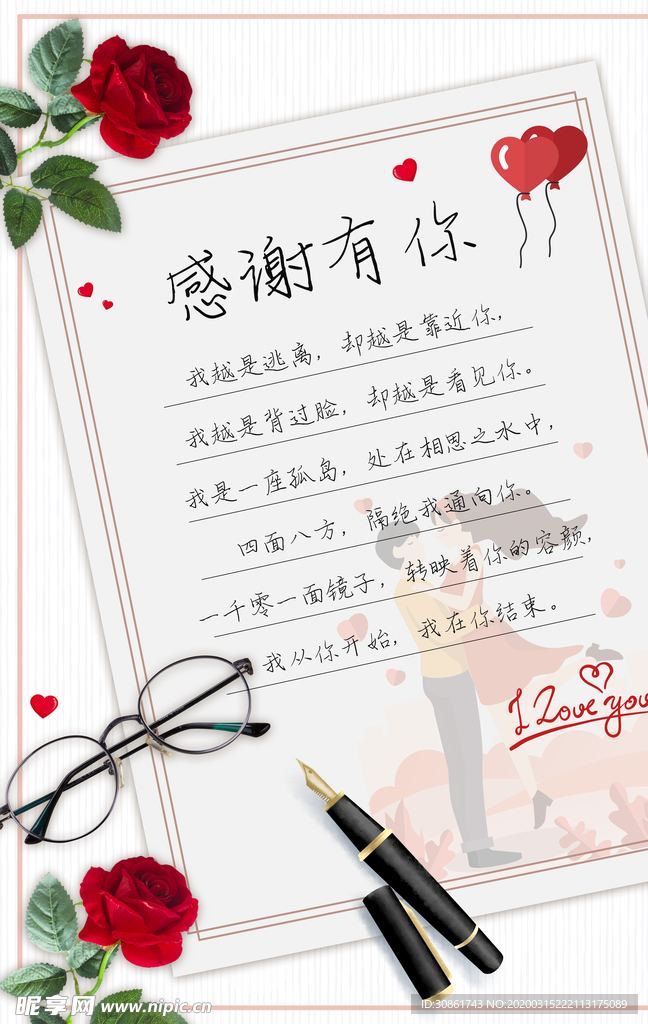 感谢有你
我越是逃离，却越是靠近你，
我越是背过脸，却越是看见你。
我是一座孤岛，处在相思之水中，
四面八方，隔绝我通向你。
一千零一面镜子，转映着你的容颜，
我从你开始，我在你结束。
I Love you
昵享网 www.nipic.cn
ID:30861743 NO:20200315222113175089